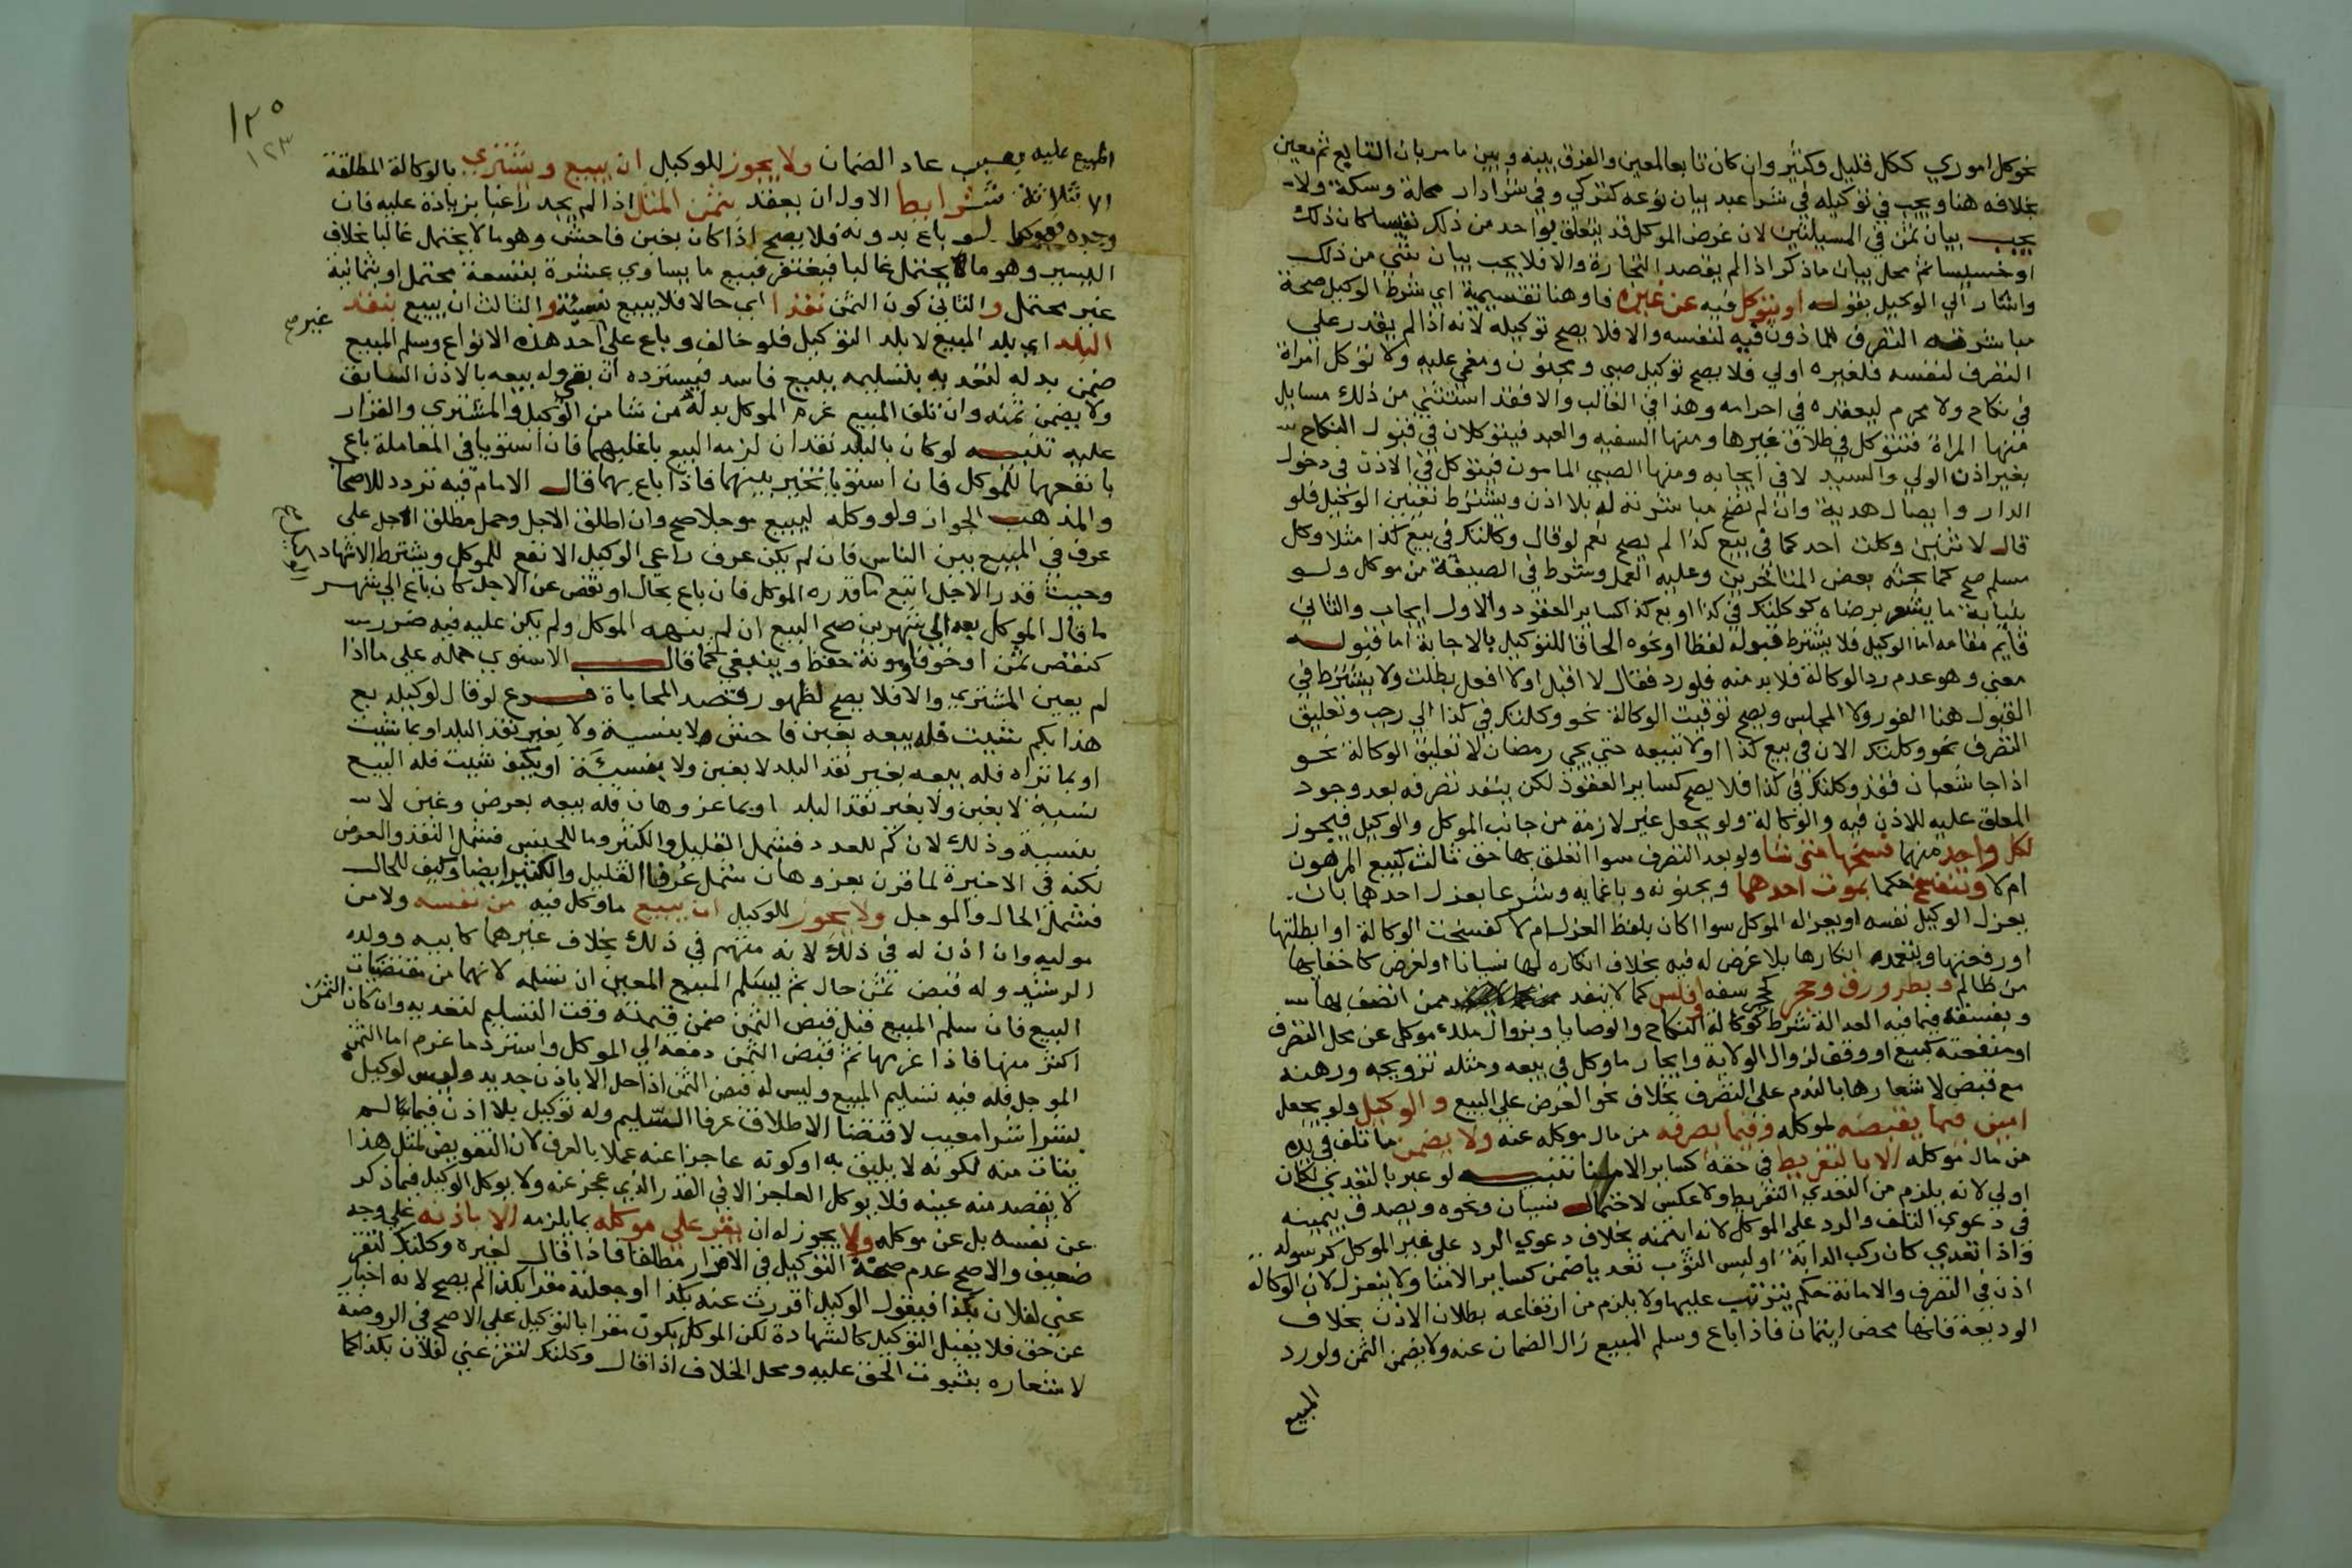 نحو كل اموري ككل قليل وكثير وان كان تابعا لمعين والفرق بينه وبين ما مر بان التابع ثم معين
بخلافه هنا ويجب في توكيله في شرا عبد بيان نوعه كتركي وفي شرا دار محلة وسكة ولا
يجب بيان ثمن في المسيلتين لان غرض الموكل قد يتعلق بواحد من ذلك نفيسا كان ذلك
او خسيسا ثم محل بيان ما ذكر اذا لم يقصد التجارة والا فلا يجب بيان شي من ذلك
واشار الي الوكيل بقوله او يتوكل فيه عن غيره فاو هنا تقسيمية اي شرط الوكيل صحة
مباشرته التصرف الماذون فيه لنفسه والا فلا يصح توكيله لانه اذا لم يقدر علي
التصرف لنفسه فلغيره اولي فلا يصح توكيل صبي ومجنون ومغمي عليه ولا توكل امراة
في نكاح ولا محرم ليعقده في احرامه وهذا في الغالب والا فقد استثني من ذلك مسايل
منها المراة فتتوكل في طلاق غيرها ومنها السفيه والعبد فيتوكلان في قبول النكاح
بغير اذن الولي والسيد لا في ايجابه ومنها الصبي المامون فيتوكل في الاذن في دخول
الدار وايصال هدية وان لم تصح مباشرته له بلا اذن ويشترط تعيين الوكيل فلو
قال لاثنين وكلت احدكما في بيع كذا لم يصح نعم لو قال وكلتك في بيع كذا مثلا وكل
مسلم صح كما بحثه بعض المتاخرين وعليه العمل وشرط في الصيغة من موكل ولو
بنيابة ما يشعر برضاه كوكلتك في كذا او بع كذا كساير العقود والاول ايجاب والثاني
قايم مقامه اما الوكيل فلا يشترط قبوله لفظا او نحوه الحاقا للتوكيل بالاجابة اما قبوله
معني وهو عدم رد الوكالة فلا بد منه فلو رد فقال لا اقبل او لا افعل بطلت ولا يشترط في
القبول هنا الفور ولا المجلس ويصح توقيت الوكالة نحو وكلتك في كذا الي رجب وتعليق
التصرف نحو وكلتك الان في بيع كذا او لا تبيعه حتي يجي رمضان لا تعليق الوكالة نحو
اذا جا شعبان فقد وكلتك في كذا فلا يصح كساير العقود لكن ينفذ تصرفه بعد وجود
المعلق عليه للاذن فيه والوكالة ولو بجعل غير لازمة من جانب الموكل والوكيل فيجوز
لكل واحد منهما فسخها متي شا ولو بعد التصرف سوا اتعلق بها حق ثالث كبيع المرهون
ام لا وتنفسخ حكما بموت احدهما وبجنونه وباغمايه وشرعا بعزل احدهما بان
يعزل الوكيل نفسه او يعزله الموكل سوا اكان بلفظ العزل ام لا كفسخت الوكالة او ابطلتها
او رفعتها وبتعمده انكارها بلا غرض له فيه بخلاف انكاره لها نسيانا او لغرض كاخفايها
من ظالم وبطرو رق وحجر كحجر سفه او فلس كما لا ينفذ ممن اتصف بها
وبفسقه فيما فيه العدالة شرط كوكالة النكاح والوصايا وبزوال ملك موكل عن محل التصرف
او منفعته كبيع او وقف لزوال الولاية وايجار ما وكل في بيعه ومثله تزويجه ورهنه
مع قبض لاشعارها بالندم على التصرف بخلاف نحو العرض على البيع والوكيل ولو بجعل
امين فيما يقبضه لموكله وفيما يصرفه من مال موكله عنه ولا يضمن ما تلف في يده
من مال موكله الا بالتفريط في حقه كساير الامنا تنبيه لو عبر بالتعدي لكان
اولي لانه يلزم من التعدي التفريط ولا عكس لاحتمال نسيان ونحوه ويصدق بيمينه
في دعوي التلف والرد على الموكل لانه ايتمنه بخلاف دعوي الرد علي غير الموكل كرسوله
واذا تعدي كان ركب الدابة او لبس الثوب تعديا ضمن كساير الامنا ولا ينعزل لان الوكالة
اذن في التصرف والامانة حكم يترتب عليها ولا يلزم من ارتفاعه بطلان الاذن بخلاف
الوديعة فانها محض ايتمان فاذا باع وسلم المبيع زال الضمان عنه ولا يضمن الثمن ولو رد
المبيع
١٢٥
١٢٣
المبيع عليه بعيب عاد الضمان ولا يجوز للوكيل ان يبيع ويشتري بالوكالة المطلقة
الا بثلاثة شرايط الاول ان يعقد بثمن المثل اذا لم يجد راغبا بزيادة عليه فان
وجده فهو كما لو باع بدونه فلا يصح اذا كان بغبن فاحش وهو ما لا يحتمل غالبا بخلاف
اليسير وهو ما يحتمل غالبا فيغتفر فبيع ما يساوي عشرة بتسعة محتمل وبثمانية
غير محتمل والثاني كون الثمن نقدا اي حالا فلا يبيع نسيئة والثالث ان يبيع بنقد
البلد اي بلد المبيع لا بلد التوكيل فلو خالف وباع على احد هذه الانواع وسلم المبيع
غير صح
ضمن بدله لتعديه بتسليمه ببيع فاسد فيسترده ان بقي وله بيعه بالاذن السابق
ولا يضمن ثمنه وان تلف المبيع غرم الموكل بدله من شا من الوكيل والمشتري والقرار
عليه تنبيه لو كان بالبلد نقدان لزمه البيع باغلبهما فان استويا في المعاملة باع
بانفعهما للموكل فان استويا تخير بينهما فاذا باع بهما قال الامام فيه تردد للاصحاب
والمذهب الجواز ولو وكله ليبيع موجلا صح وان اطلق الاجل وحمل مطلق الاجل على
عرف في المبيع بين الناس فان لم يكن عرف راعي الوكيل الانفع للموكل ويشترط الاشهاد
وحيث قدر الاجل اتبع ما قدره الموكل فان باع بحال او نقص عن الاجل كان باع الي شهر
ما قال الموكل بعه الي شهرين صح البيع ان لم ينهه الموكل ولم يكن عليه فيه ضرر
كنقص ثمن او خوف او مونة حفظ وينبغي كما قال الاسنوي حمله علي ما اذا
لم يعين المشتري والا فلا يصح لظهور قصد المحاباة فرع لو قال لوكيله بع
هذا بكم شيت فله بيعه بغبن فاحش ولا بنسية ولا بغير نقد البلد او بما شيت
او بما تراه فله بيعه بغير نقد البلد لا بغبن ولا بنسيئة او بكيف شيت فله البيع
بنسية لا بغبن ولا بغير نقد البلد او بما عز وهان فله بيعه بعرض وغبن لا
بنسية وذلك لان كم للعدد فشمل القليل والكثير وما للجنس فشمل النقد والعرض
لكنه في الاخيرة لما قرن بعز وهان شمل عرفا القليل والكثير ايضا وكيف للحال
فشمل الحال والموجل ولا يجوز للوكيل ان يبيع ما وكل فيه من نفسه ولا من
موليه وان اذن له في ذلك لانه متهم في ذلك بخلاف غيرهما كابيه وولده
الرشيد وله قبض ثمن حال ثم يسلم المبيع المعين ان تسلمه لانهما من مقتضيات
البيع فان سلم المبيع قبل قبض الثمن ضمن قيمته وقت التسليم لتعديه وان كان الثمن
اكثر منها فاذا غرمها ثم قبض الثمن دفعه الي الموكل واسترد ما غرم اما الثمن
الموجل فله فيه تسليم المبيع وليس له قبض الثمن اذا حل الا باذن جديد وليس لوكيل
بشرا شرا معيب لاقتضا الاطلاق عرفا السليم وله توكيل بلا اذن فيما لم
يتات منه لكونه لا يليق به او كونه عاجزا عنه عملا بالعرف لان التفويض لمثل هذا
لا يقصد منه عينه فلا يوكل العاجز الا في القدر الذي عجز عنه ولا يوكل الوكيل فيما ذكر
عن نفسه بل عن موكله ولا يجوز له ان يقر علي موكله بما يلزمه الا باذنه علي وجه
ضعيف والاصح عدم صحة التوكيل في الاقرار مطلقا فاذا قال لغيره وكلتك لتقر
عني لفلان بكذا فيقول الوكيل اقررت عنه بكذا او جعلته مقرا بكذا لم يصح لانه اخبار
عن حق فلا يقبل التوكيل كالشهادة لكن الموكل يكون مقرا بالتوكيل علي الاصح في الروضة
لاشعاره بثبوت الحق عليه ومحل الخلاف اذا قال وكلتك لتقر عني لفلان بكذا كما